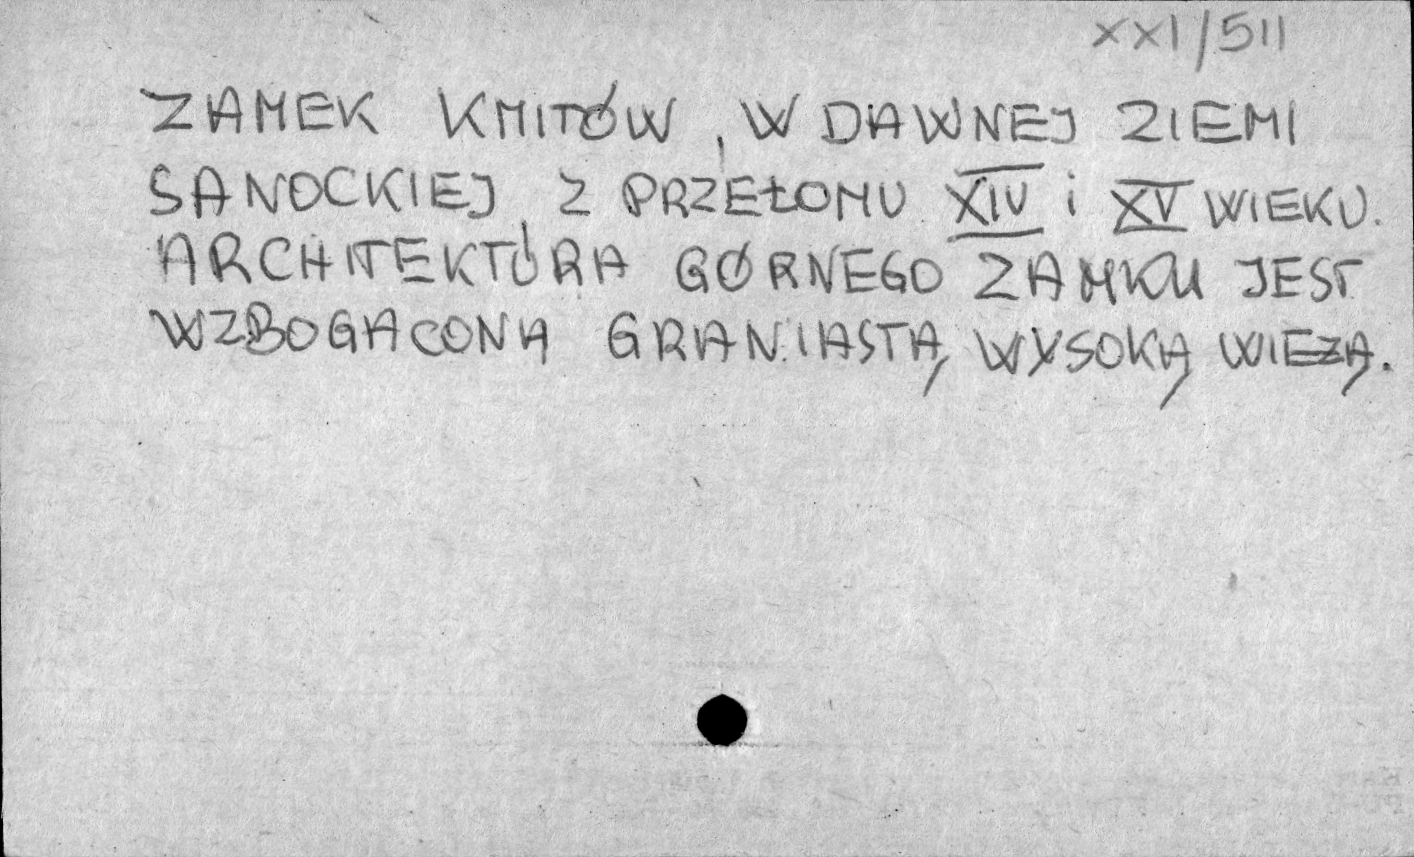 XXI/511
ZAMEK KMITÓW, W DAWNEJ ZIEMI
SANOCKIEJ, Z PRZEŁOMU XIV i XV WIEKU.
ARCHITEKTURA GÓRNEGO ZAMKU JEST
WZBOGACONA GRANIASTĄ WYSOKĄ WIEŻĄ.